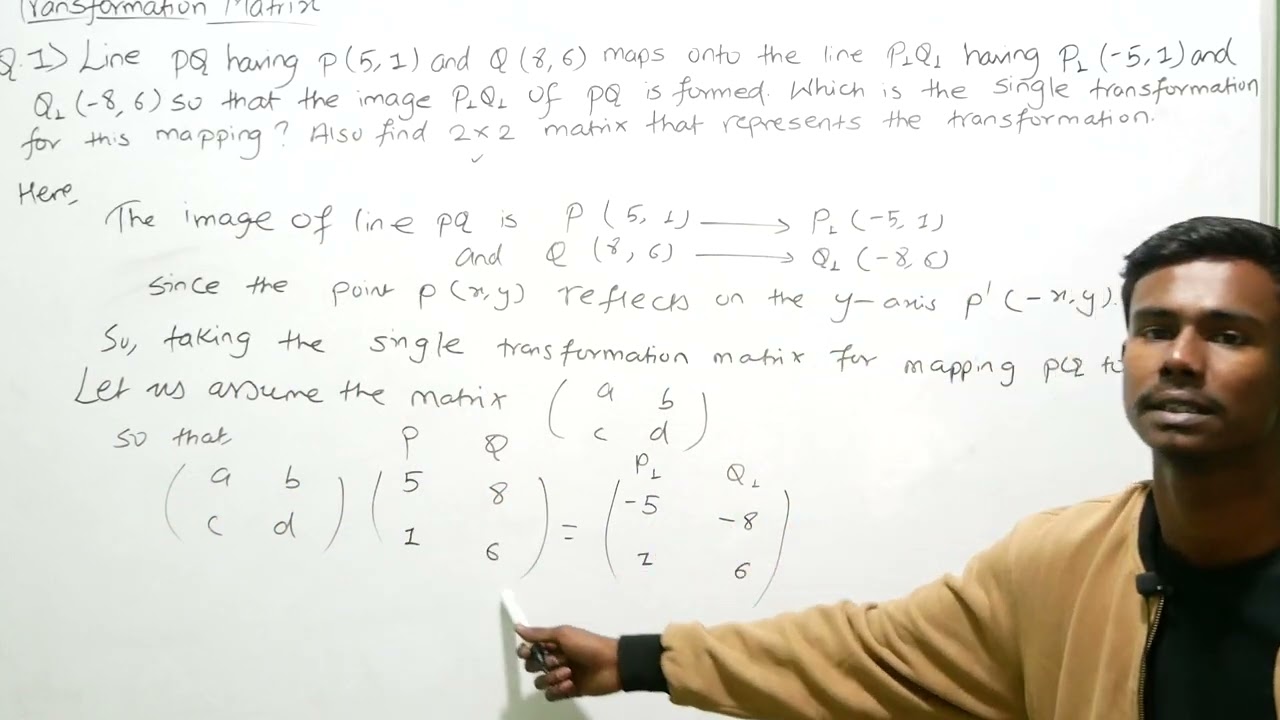 Transformation Matrix
Q.1) Line PQ having P(5,1) and Q(8,6) maps onto the line P₁Q₁ having P₁(-5,1) and
Q₁(-8,6) so that the image P₁Q₁ of PQ is formed. Which is the single transformation
for this mapping? Also find 2×2 matrix that represents the transformation.
Here,
The image of line PQ is P(5,1) ⟶ P₁(-5,1)
and Q(8,6) ⟶ Q₁(-8,6)
Since the point P(x,y) reflects on the y-axis P'(-x,y).
So, taking the single transformation matrix for mapping PQ to
Let us assume the matrix ( a b
c d )
so that, P Q P₁ Q₁
( a b ) ( 5 8 ) = ( -5 -8 )
( c d ) ( 1 6 ) ( 1 6 )